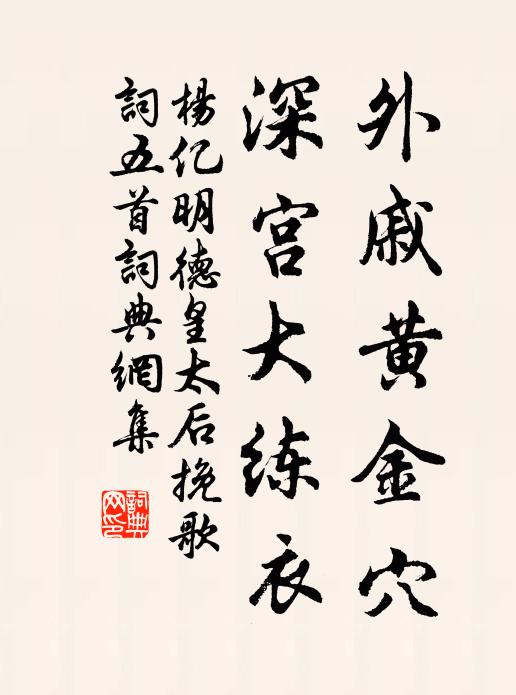 外戚黄金穴
深宫大练衣
楊亿明德皇太后挽歌
詞五首詞典網集
詞典
网印